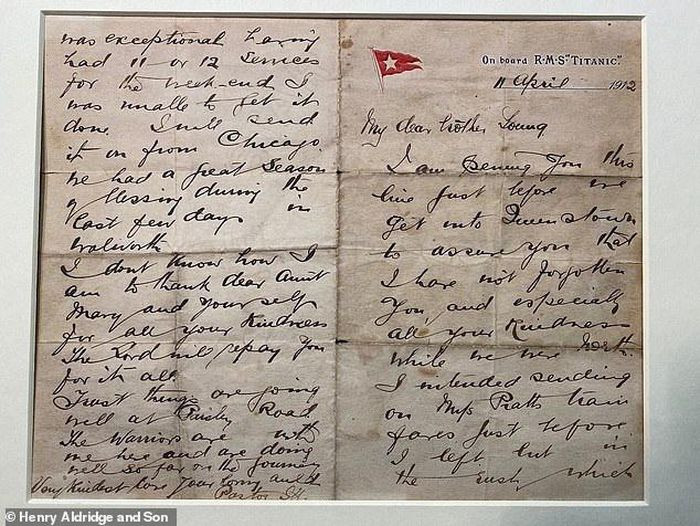 On board R.M.S. "TITANIC".
11 April 1912
My dear brother Young
I am penning you this
line just before we
get into Queenstown
to assure you that
I have not forgotten
you and especially
all your kindness
while we were North.
I intended sending
on Miss Pratts train
fares just before
I left but in
the rush which
was exceptional having
had 11 or 12 Services
for the week-end I
was unable to get it
done. I will send
it on from Chicago.
We had a great Season
of blessing during the
last few days in
Walworth.
I dont know how I
am to thank dear Aunt
Mary and Yourself
for all your Kindness
The Lord will repay you
for it all.
Trust things are going
well at Paisley Road
The Warriors are with
me here and are doing
well so far on the Journey
Very kindest love your loving auld
Pastor J.H.
© Henry Aldridge and Son